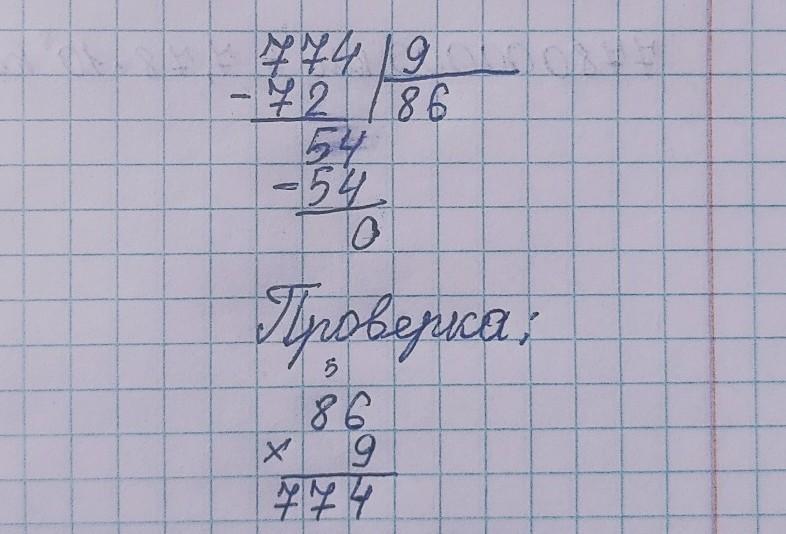 774 | 9
- 72 | 86
54
- 54
0
Проверка:
5
86
× 9
774